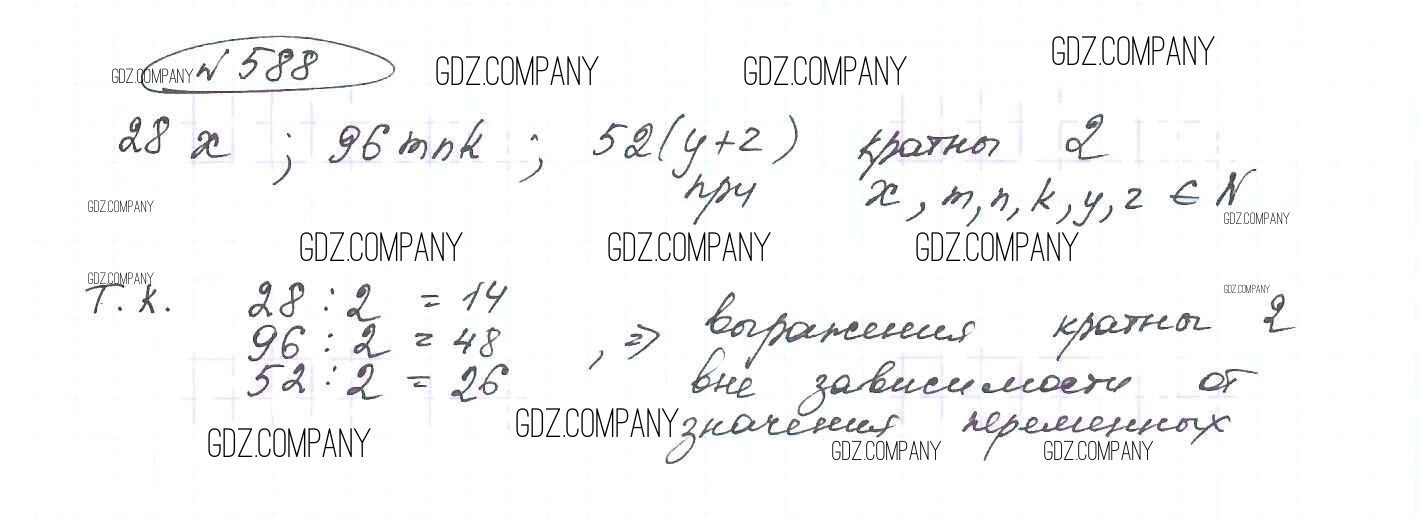 GDZ.COMPANY № 588 GDZ.COMPANY GDZ.COMPANY GDZ.COMPANY
28 x ; 96 mnk ; 52(y+z) кратны 2
при x, m, n, k, y, z ∈ N
GDZ.COMPANY GDZ.COMPANY
GDZ.COMPANY GDZ.COMPANY GDZ.COMPANY
GDZ.COMPANY GDZ.COMPANY
Т. к. 28 : 2 = 14
96 : 2 = 48
52 : 2 = 26
, ⇒ выражения кратны 2
вне зависимости от
значения переменных
GDZ.COMPANY GDZ.COMPANY GDZ.COMPANY GDZ.COMPANY